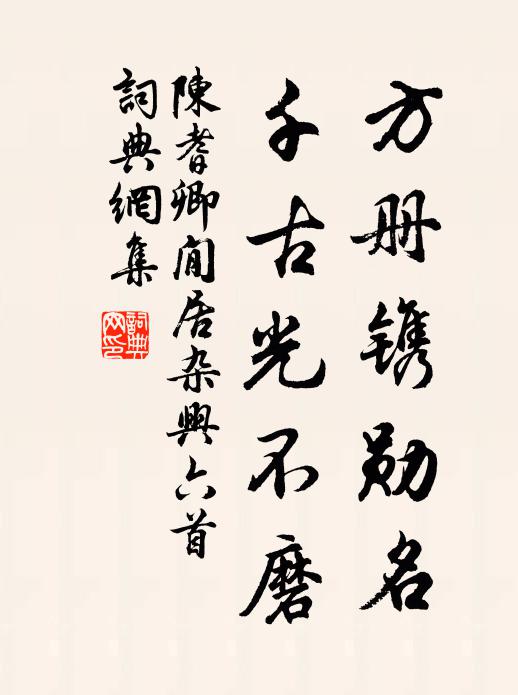 方册镌勋名
千古光不磨
陳耆卿閒居杂興六首
詞典網集
詞典网印